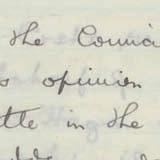 the Counci
s opinion
ttle in the